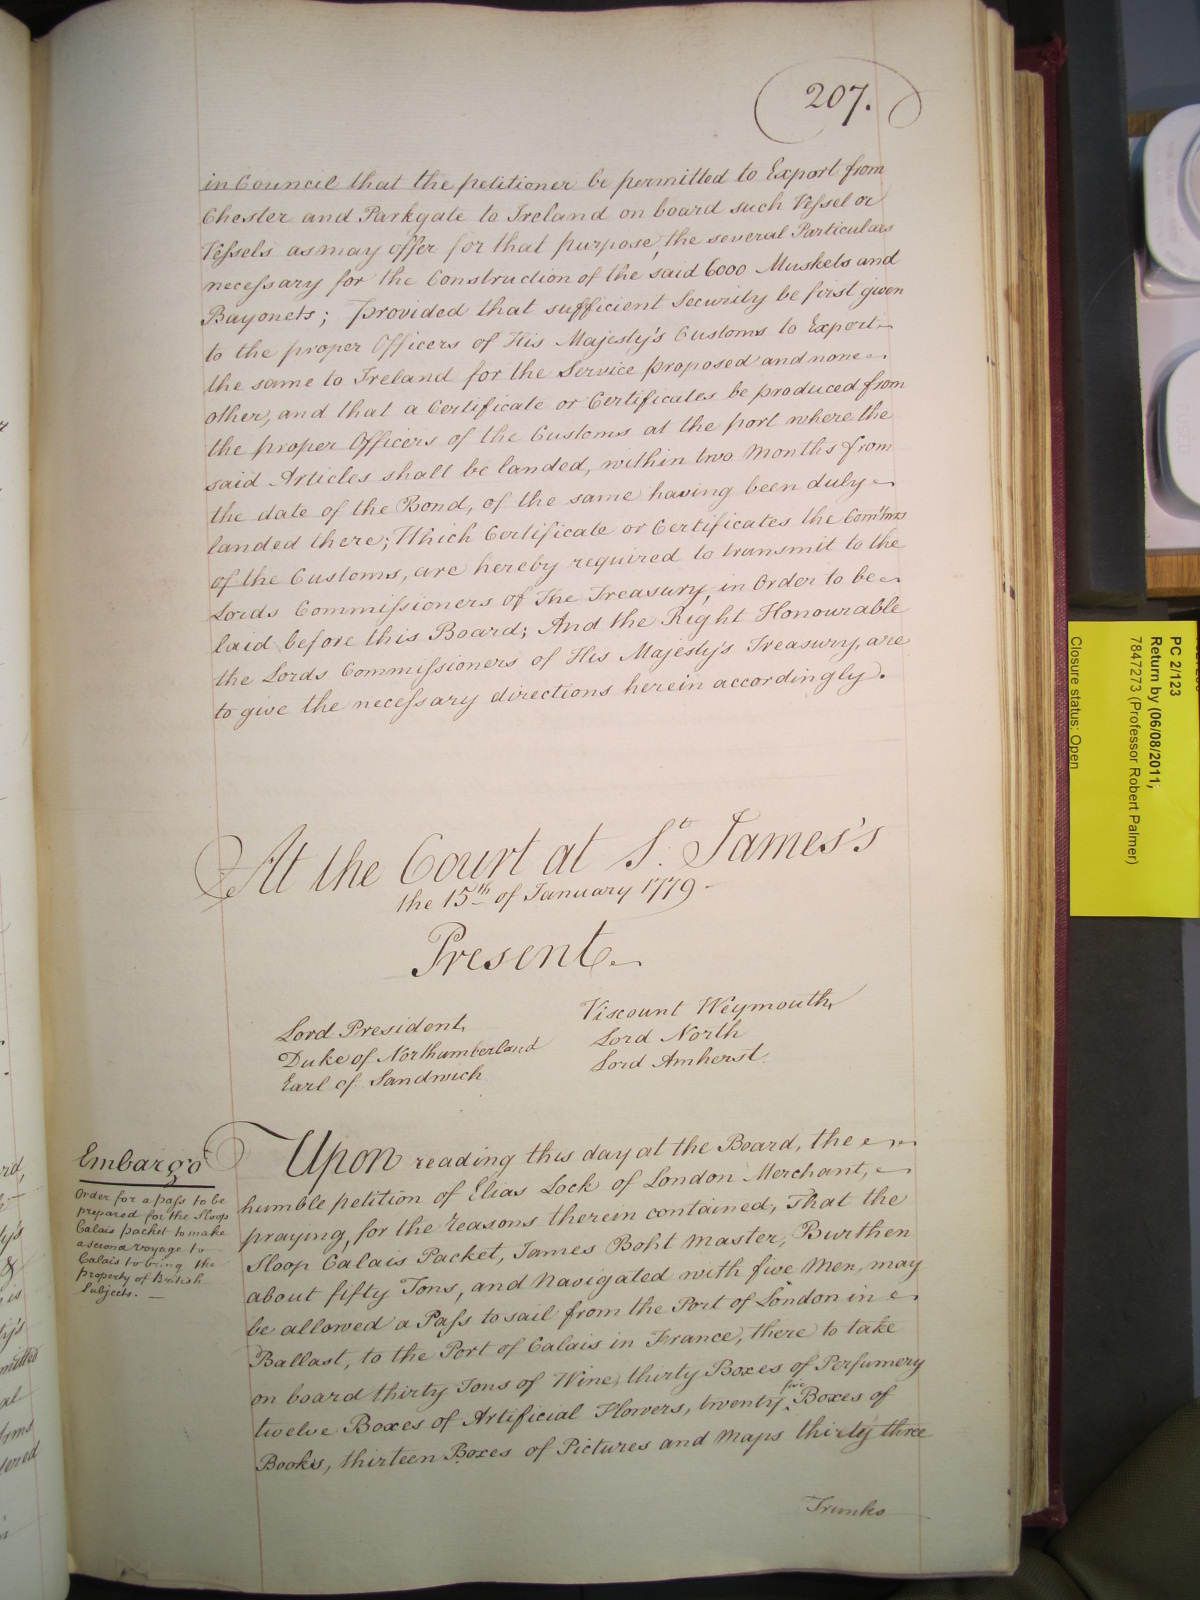 207.
in Council that the petitioner be permitted to Export from
Chester and Parkgate to Ireland on board such Vessel or
Vessels as may offer for that purpose, the several Particulars
necessary for the Construction of the said 6000 Muskets and
Bayonets; provided that sufficient Security be first given
to the proper Officers of His Majesty's Customs to Export
the same to Ireland for the Service proposed and none
other, and that a Certificate or Certificates be produced from
the proper Officers of the Customs at the port where the
said Articles shall be landed, within two Months from
the date of the Bond, of the same having been duly
landed there; Which Certificate or Certificates the
of the Customs, are hereby required to transmit to the
Lords Commissioners of The Treasury, in Order to be
laid before this Board; And the Right Honourable
the Lords Commissioners of His Majesty's Treasury, are
to give the necessary directions herein accordingly.
At the Court at St. James's
the 15th of January 1779
Present
Lord President,
Duke of Northumberland
Earl of Sandwich
Viscount Weymouth,
Lord North
Lord Amherst.
Embargo
Order for a pass to be
prepared for the Sloop
Calais packet to make
a second voyage to
Calais to bring the
property of British
Subjects.
Upon reading this day at the Board, the
humble petition of Elias Lock of London Merchant,
praying, for the reasons therein contained, That the
Sloop Calais Packet, James Boht Master, Burthen
about fifty Tons, and Navigated with five Men, may
be allowed a Pass to sail from the Port of London in
Ballast, to the Port of Calais in France, there to take
on board thirty Tons of Wine, thirty Boxes of Perfumery
twelve Boxes of Artificial Flowers, twenty five Boxes of
Books, thirteen Boxes of Pictures and Maps thirty three
Trunks
PC 2/123
Return by (06/08/2011;
7847273 (Professor Robert Palmer)
Closure status: Open